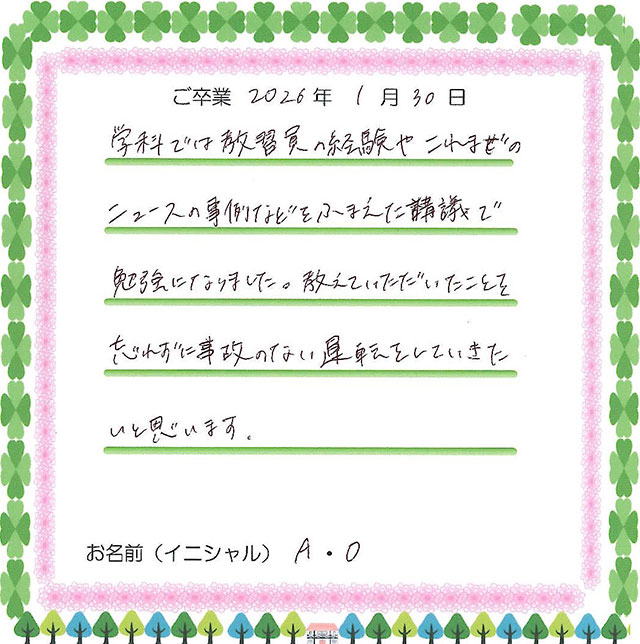 ご卒業 2026年 1月30日
学科では教習員の経験やこれまでの
ニュースの事例などをふまえた講議で
勉強になりました。教えていただいたことを
忘れずに事故のない運転をしていきた
いと思います。
お名前（イニシャル） A・O